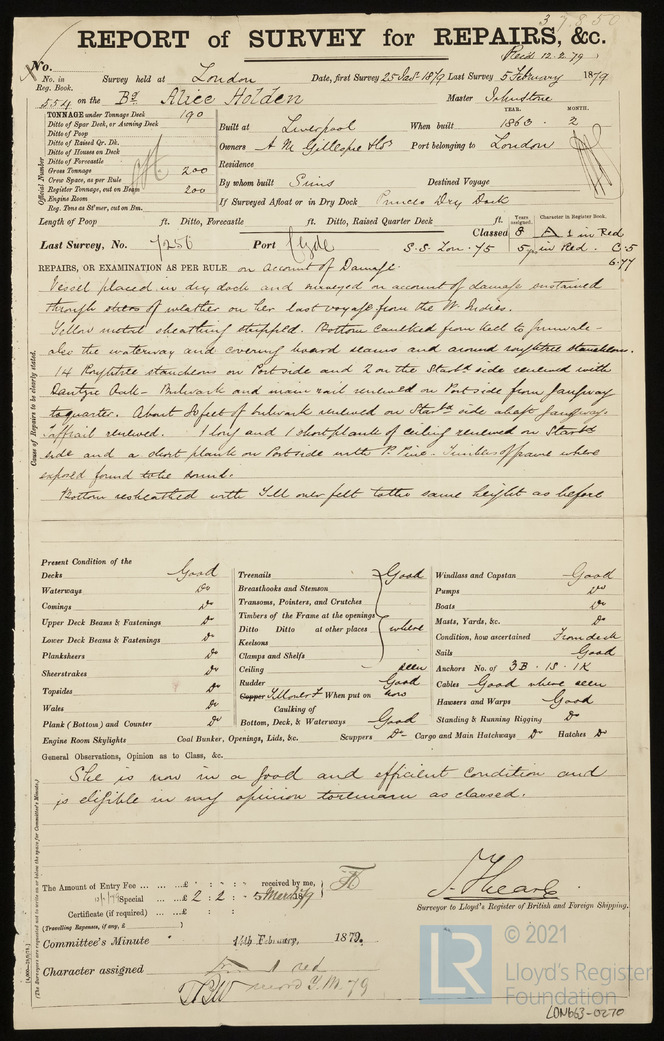 37850
REPORT of SURVEY for REPAIRS, &c.
Recd. 12.2.79
No.
No. in Reg. Book. Survey held at London Date, first Survey 25 Jany 1879 Last Survey 5 February 1879
454 on the Bq Alice Holden Master Johnstone
TONNAGE under Tonnage Deck 190
Ditto of Spar Deck, or Awning Deck
Ditto of Poop
Ditto of Raised Qr. Dk.
Ditto of Houses on Deck
Ditto of Forecastle
Gross Tonnage 200
Crew Space, as per Rule
Register Tonnage, cut on Beam 200
Engine Room
Reg. Tons as St'mer, cut on Bm.
Official Number
YEAR. MONTH.
Built at Liverpool When built 1863 . 2
Owners A M Gillespie & Co Port belonging to London
Residence
By whom built Sims Destined Voyage
If Surveyed Afloat or in Dry Dock Princes Dry Dock
Length of Poop ft. Ditto, Forecastle ft. Ditto, Raised Quarter Deck ft.
Years assigned. Character in Register Book.
Classed 8 A 1 in Red
Last Survey, No. 7256 Port Clyde S.S. Lon. 75 5 yrs in Red. C.5
6.77
REPAIRS, OR EXAMINATION AS PER RULE on account of Damage.
Cause of Repairs to be clearly stated.
Vessel placed in dry dock and surveyed on account of damage sustained
through stress of weather on her last voyage from the W. Indies.
Yellow metal sheathing stripped. Bottom caulked from keel to gunwale -
also the waterway and covering board seams and around roughtree stancheons.
14 Roughtree stancheons on Port side and 2 on the Starbd side renewed with
Dantzic Oak - Bulwark and main rail renewed on Port side from gangway
to quarter. About feet of bulwark renewed on Starbd side abaft gangway.
Taffrail renewed. 1 long and 1 short plank of ceiling renewed on Starbd
side and a short plank on Port side with P. Pine - Timbers of frame where
exposed found to be sound.
Bottom resheathed with Y.M over felt to the same height as before
Present Condition of the
Decks Good
Waterways Do
Comings Do
Upper Deck Beams & Fastenings Do
Lower Deck Beams & Fastenings Do
Planksheers Do
Sheerstrakes Do
Topsides Do
Wales Do
Plank (Bottom) and Counter Do
Engine Room Skylights
Treenails Good
Breasthooks and Stemson
Transoms, Pointers, and Crutches
Timbers of the Frame at the openings
Ditto Ditto at other places where
Keelsons
Clamps and Shelfs
Ceiling seen
Rudder Good
Copper Y.M over F When put on now
Caulking of
Bottom, Deck, & Waterways Good
Windlass and Capstan Good
Pumps Do
Boats Do
Masts, Yards, &c. Do
Condition, how ascertained From deck
Sails Good
Anchors No. of 3B . 1S . 1K
Cables Good where seen
Hawsers and Warps Good
Standing & Running Rigging Do
Coal Bunker, Openings, Lids, &c. Scuppers Do Cargo and Main Hatchways Do Hatches Do
General Observations, Opinion as to Class, &c.
She is now in a good and efficient condition and
is eligible in my opinion to remain as classed.
The Amount of Entry Fee £ : : received by me,
Special £ 2 : 2 : -
Certificate (if required) £ : :
(Travelling Expenses, if any, £ )
Surveyor to Lloyd's Register of British and Foreign Shipping.
Committee's Minute 14th February, 1879.
Character assigned 1 red
record Y.M. 79
LR
© 2021
Lloyd's Register
Foundation
LON663-0270